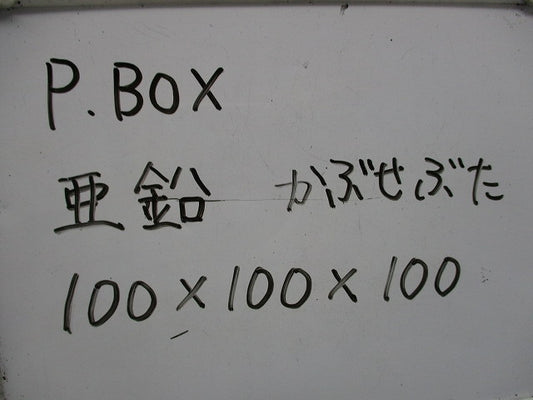 P.BOX
亜鉛 かぶせぶた
100×100×100